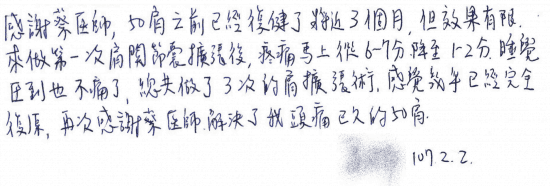 感謝蔡医師，50肩之前已經復健了將近3個月，但效果有限．
來做第一次肩関節囊擴張後，疼痛馬上從6-7分降至1-2分．睡覺
压到也不痛了，總共做了3次的肩擴張術，感覺幾乎已經完全
復原，再次感謝蔡医師．解決了我頭痛已久的50肩．
107.2.2.